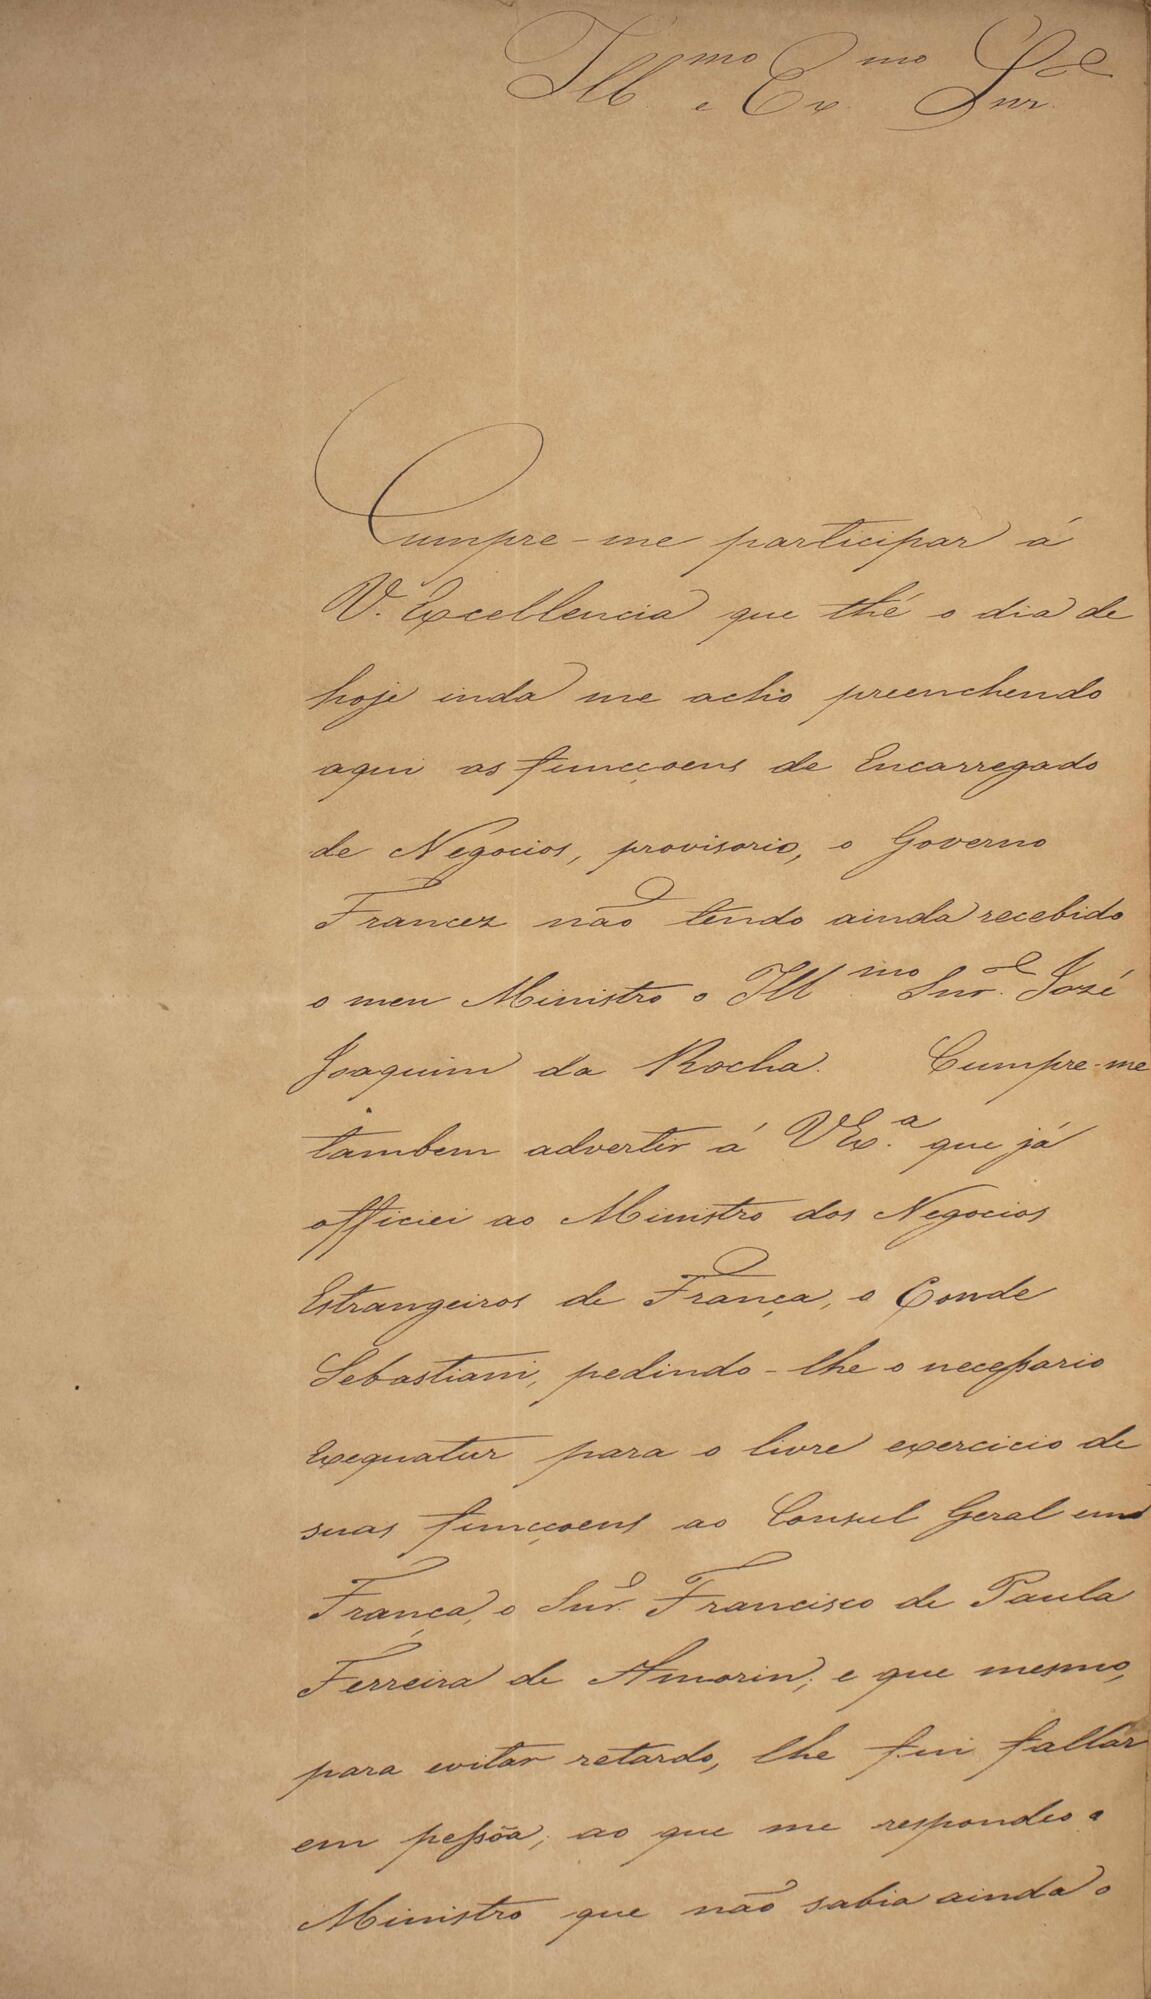 Ill.mo e Ex.mo Snr.
Cumpre-me participar á
V. Excellencia que thé o dia de
hoje inda me acho preenchendo
aqui as funcçoens de Encarregado
de Negocios, provisorio, o Governo
Francez não tendo ainda recebido
o meu Ministro o Ill.mo Snr. José
Joaquim da Rocha. Cumpre-me
tambem advertir á VEx.a que já
officiei ao Ministro dos Negocios
Estrangeiros de França, o Conde
Sebastiani, pedindo-lhe o necessario
Exequatur para o livre exercicio de
suas funcçoens ao Consul Geral em
França, o Snr. Francisco de Paula
Ferreira de Amorin; e que mesmo,
para evitar retardo, lhe fui fallar
em pessõa; ao que me respondeo o
Ministro que não sabia ainda o